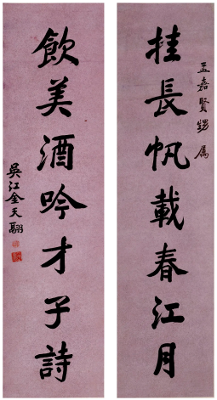 孟嘉賢甥属
挂長帆載春江月
飲美酒吟才子詩
吳江金天翮